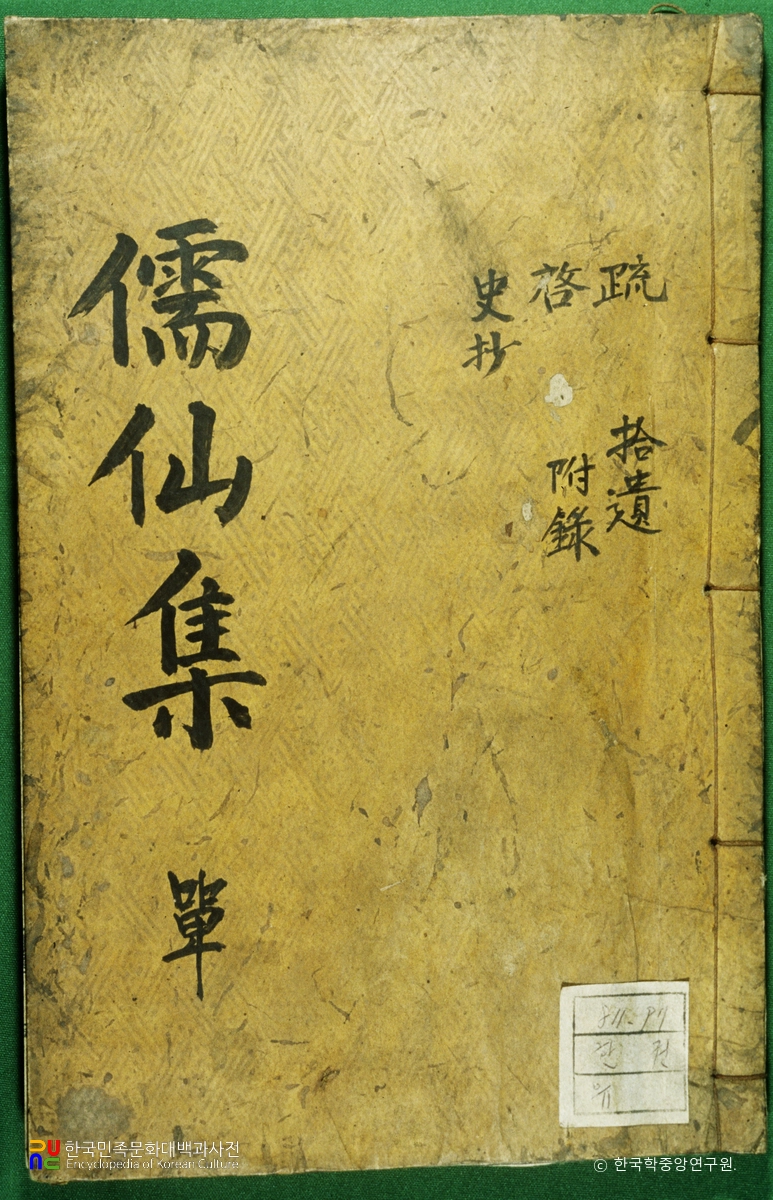 疏
啓
史抄
拾遺
附錄
儒仙集 單
811.97
한국민족문화대백과사전
Encyclopedia of Korean Culture
© 한국학중앙연구원.